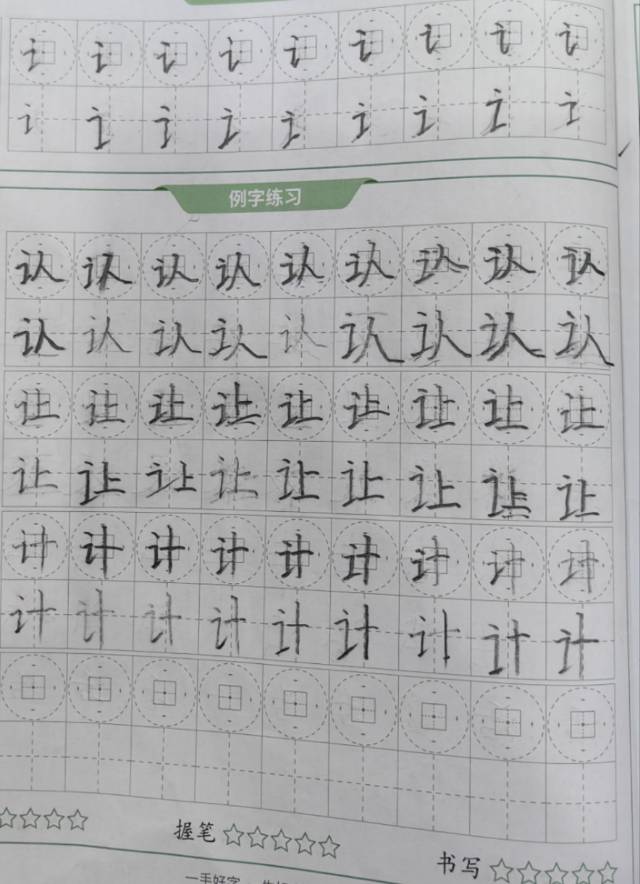 讠讠讠讠讠讠讠讠讠
讠讠讠讠讠讠讠讠讠
例字练习
认认认认认认认认认
认认认认认认认认认
让让让让让让让让让
让让让让让让让让让
计计计计计计计计计
计计计计计计计计计
握笔
书写
一手好字